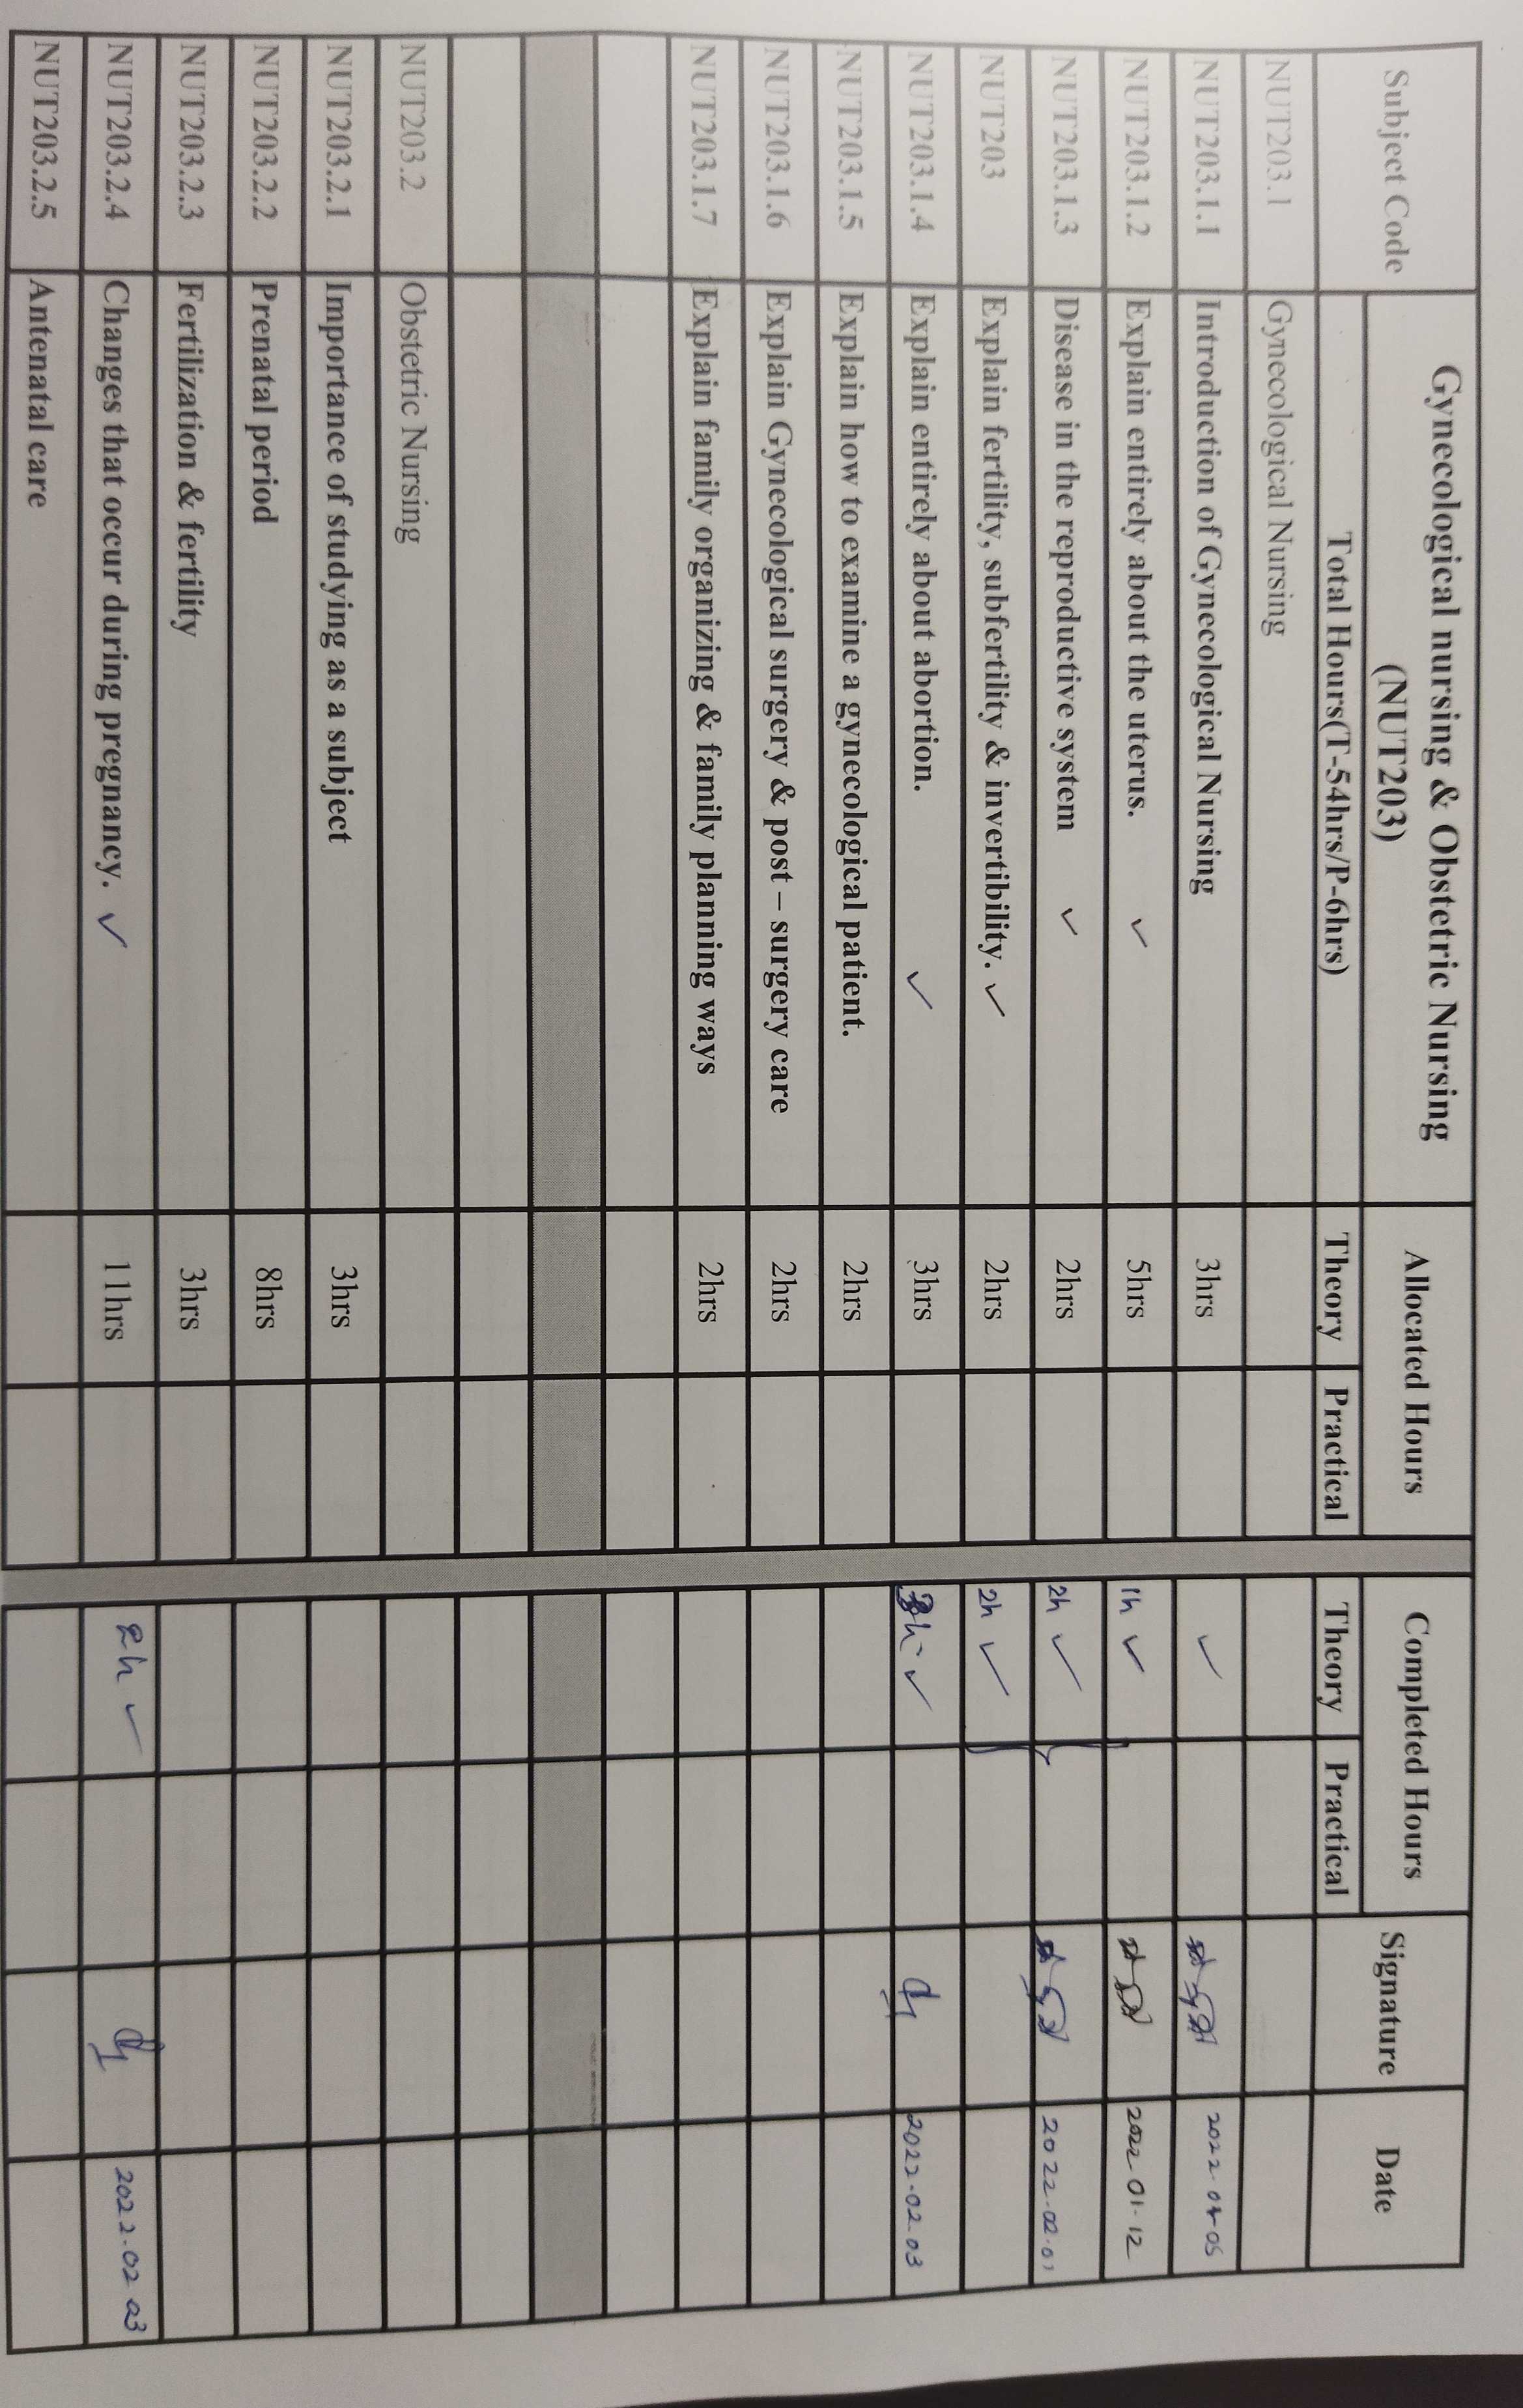 Subject Code Gynecological nursing & Obstetric Nursing Allocated Hours Completed Hours Signature Date
(NUT203)
Total Hours(T-54hrs/P-6hrs) Theory Practical Theory Practical
NUT203.1 Gynecological Nursing
NUT203.1.1 Introduction of Gynecological Nursing 3hrs ✓ 2022.04.05
NUT203.1.2 Explain entirely about the uterus. ✓ 5hrs 1h ✓ 2022 01.12
NUT203.1.3 Disease in the reproductive system ✓ 2hrs 2h ✓ 2022.02.
NUT203 Explain fertility, subfertility & invertibility. ✓ 2hrs 2h ✓
NUT203.1.4 Explain entirely about abortion. ✓ 3hrs ✓ 2022.02.03
NUT203.1.5 Explain how to examine a gynecological patient. 2hrs
NUT203.1.6 Explain Gynecological surgery & post – surgery care 2hrs
NUT203.1.7 Explain family organizing & family planning ways 2hrs
NUT203.2 Obstetric Nursing
NUT203.2.1 Importance of studying as a subject 3hrs
NUT203.2.2 Prenatal period 8hrs
NUT203.2.3 Fertilization & fertility 3hrs
NUT203.2.4 Changes that occur during pregnancy. ✓ 11hrs 2h ✓ 2022.02 03
NUT203.2.5 Antenatal care